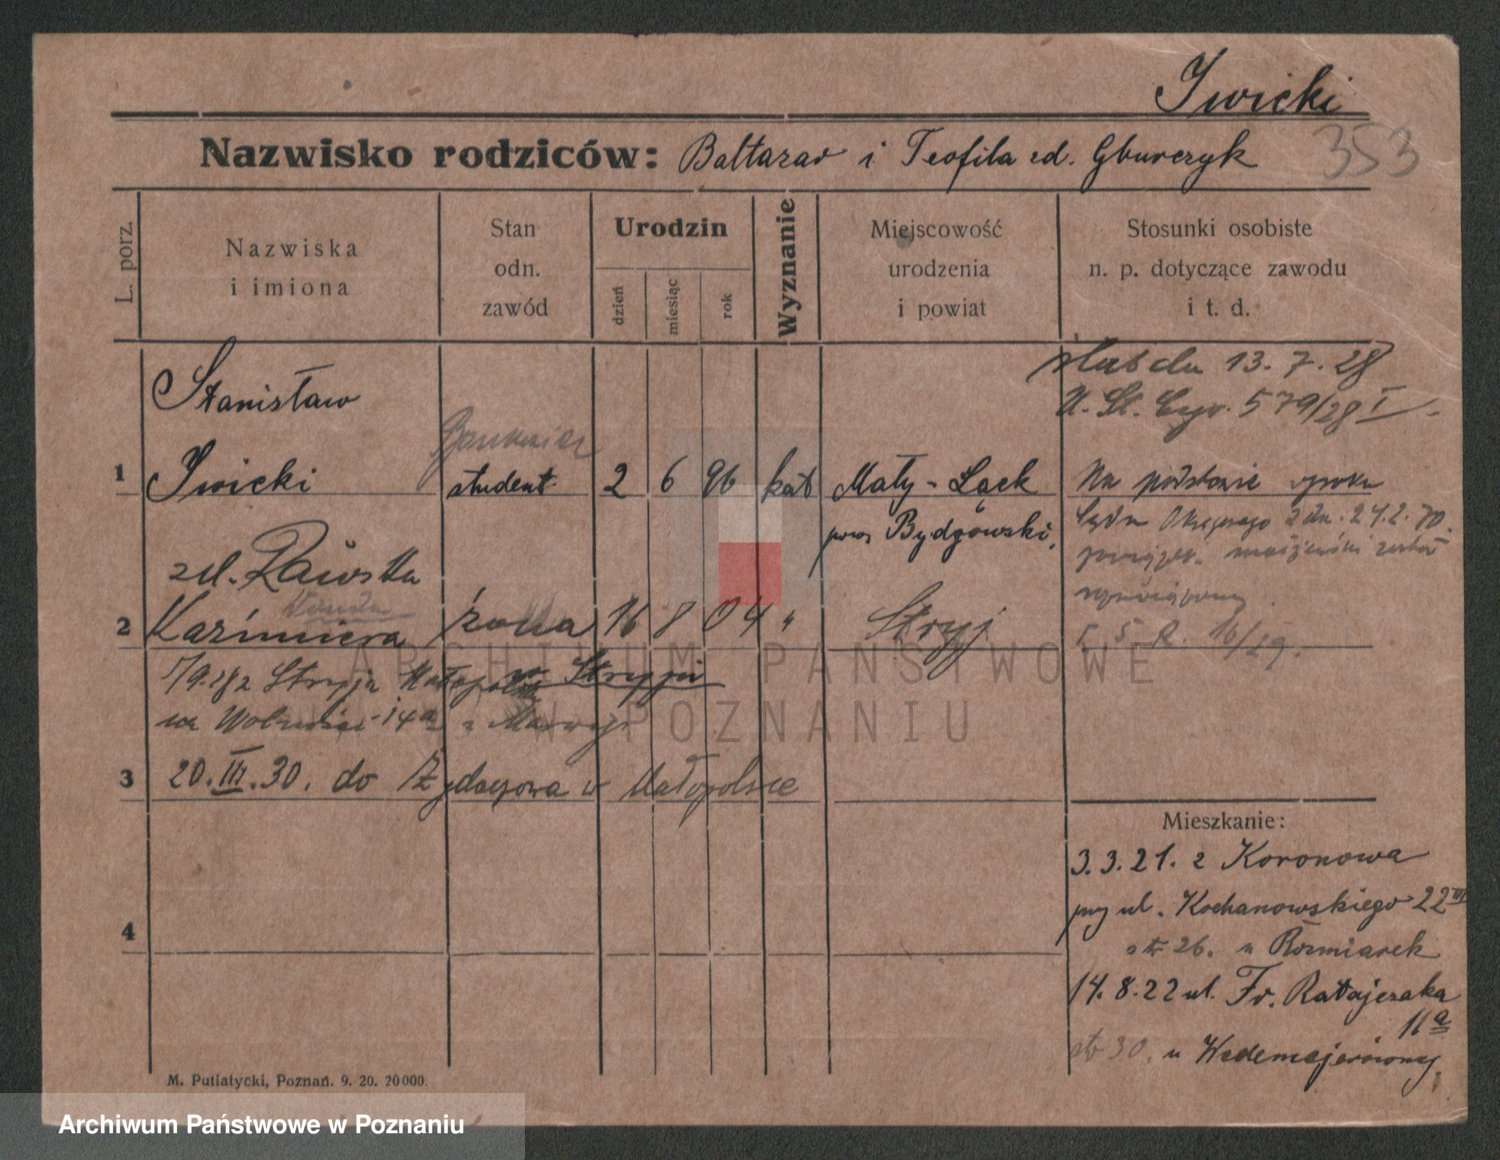 Iwicki
353
Nazwisko rodziców: Baltazar i Teofila zd. Gburczyk
L. porz.
Nazwiska
i imiona
Stan
odn.
zawód
Urodzin
dzień
miesiąc
rok
Wyznanie
Miejscowość
urodzenia
i powiat
Stosunki osobiste
n. p. dotyczące zawodu
i t. d.
13.7.28
U. St. Cyw. 579/28 I
Stanisław
1 Iwicki student 2 6 96 kat Mały-Ląck
pow Bydgowski,
Na podstawie wyroku
Sądu Okręgowego z dn. 21.2.
małżeński został
rozwiązany
16/29.
zd. Rawska
Wanda
2 Kazimiera żona 16 8 04 " Stryj
z Stryja Małopol w Stryju
14a
3 20.III.30. do Żydaczowa w Małopolsce
4
Mieszkanie:
3.3.21. z Koronowa
przy ul. Kochanowskiego 22 III
str 26. u Rozmiarek
14.8.22 ul. Fr. Ratajczaka
11a
str 30. u Wedemajerówny
M. Putiatycki, Poznań. 9. 20. 20000.
ARCHIWUM PAŃSTWOWE
W POZNANIU
Archiwum Państwowe w Poznaniu